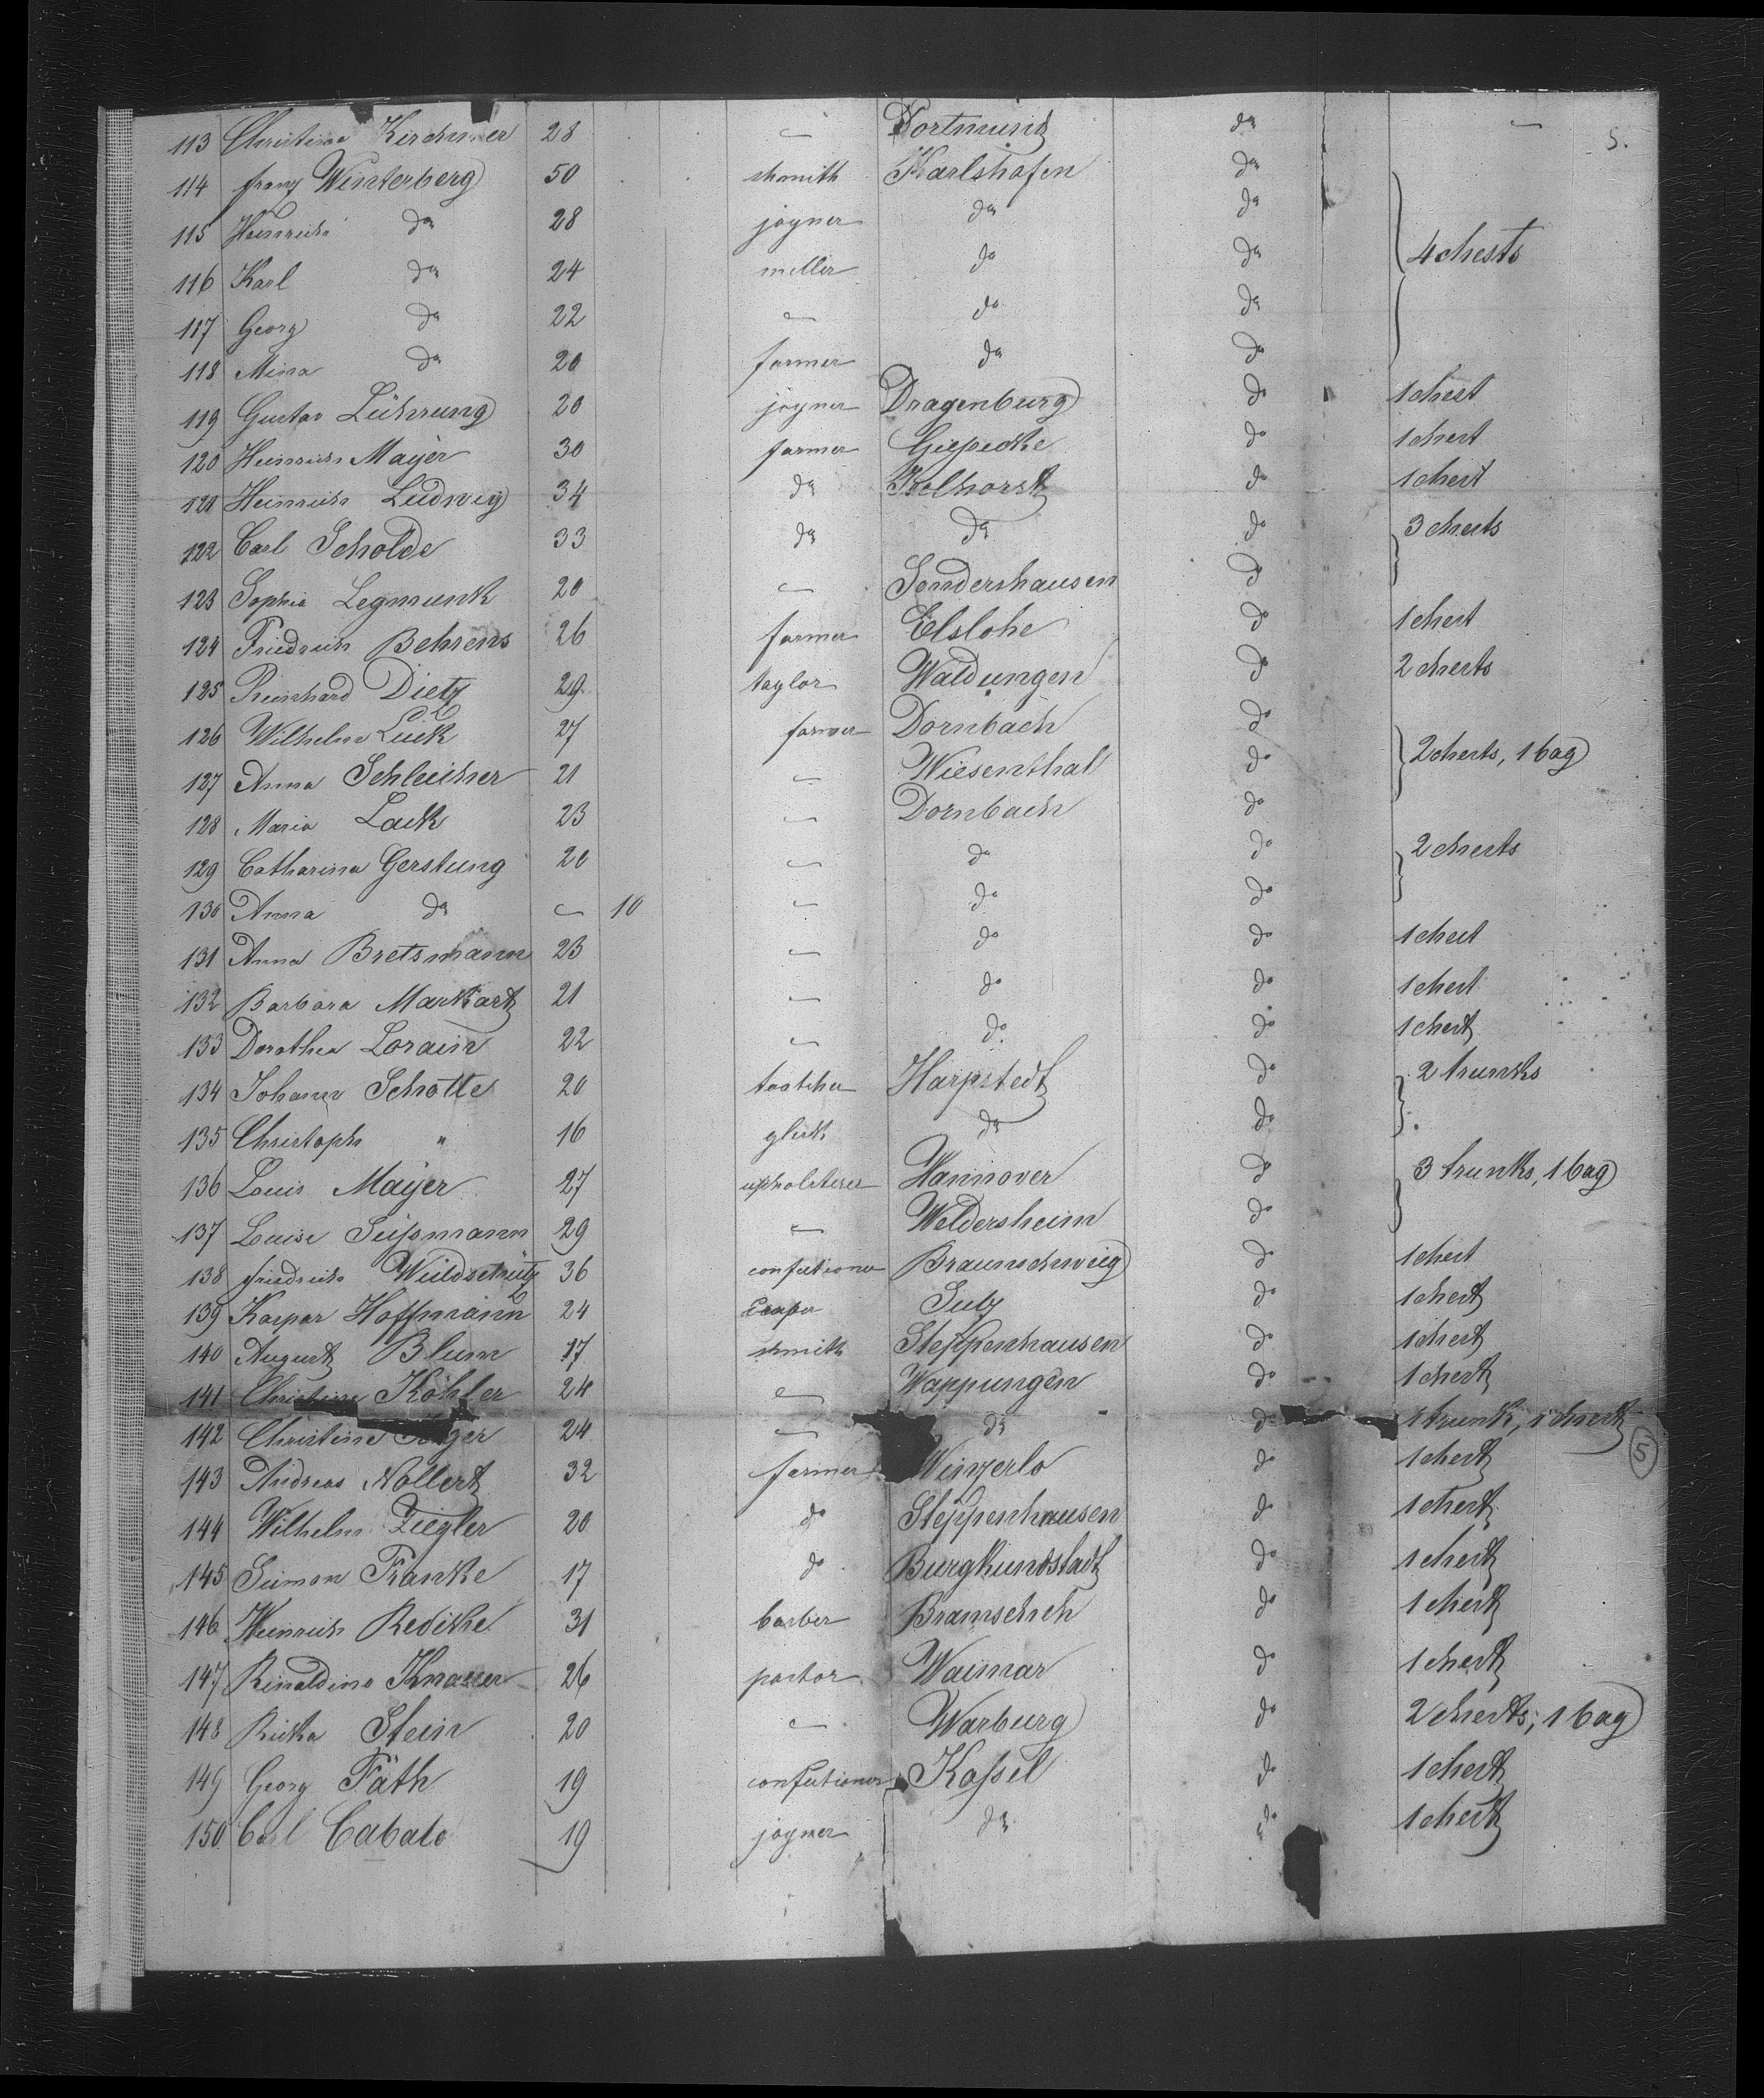 5.
113 Christine Kirchner 28 — Dortmund do —
114 franz Winterberg 50 shmith Karlshafen do
115 Heinrich do 28 joyner do do
116 Karl do 24 meller do do 4 chests
117 Georg do 22 — do do
118 Mina do 20 farmer do do
119 Gustav Lührung 20 joyner Dragenburg do 1 chest
120 Heinrich Mayer 30 farmer Giepecke do 1 chest
121 Heinrich Ludwig 34 do Kolhorst do 1 chest
122 Carl Scholde 33 do do do 3 chests
123 Sophia Legmunk 20 — Sondershausen do
124 Friedrich Behrens 26 farmer Elslohe do 1 chest
125 Reinhard Dietz 29 taylor Waldungen do 2 chests
126 Wilhelm Lück 27 farmer Dornbach do
127 Anna Schleicher 21 — Wiesenthal do 2 chests, 1 bag
128 Maria Lack 23 — Dornbach do
129 Catharina Gerstung 20 — do do 2 chests
130 Anna do — 10 — do do
131 Anna Bretsmann 23 — do do 1 chest
132 Barbara Markart 21 — do do 1 chest
133 Dorothea Lorain 22 — do do 1 chest
134 Johann Schotte 20 Harpstedt do 2 trunks
135 Christoph " 16 do do
136 Louis Mayer 27 upholsterer Hannover do 3 trunks, 1 bag
137 Louise Süssmann 29 — Weldersheim do
138 friedrich Wildschütz 36 confectioner Braunschweig do 1 chest
139 Kaspar Hoffmann 24 Sulz do 1 chest
140 August Blum 17 shmith Steppenhausen do 1 chest
141 Christine Köhler 24 — Wappungen do 1 chest
142 Christine 24 — do do 1 trunk, 1 chest
5
143 Andreas Nollert 32 farmer Winzerlo do 1 chest
144 Wilhelm Ziegler 20 do Steppenhausen do 1 chest
145 Simon Franke 17 do Burgkundstadt do 1 chest
146 Heinrich Redicke 31 barber Bramschch do 1 chest
147 Rinaldino Knauer 26 pastor Waimar do 1 chest
148 Ricka Stein 20 — Warburg do 2 chests, 1 bag
149 Georg Fäth 19 confectioner Kassel do 1 chest
150 Carl Cabale 19 joyner do do 1 chest